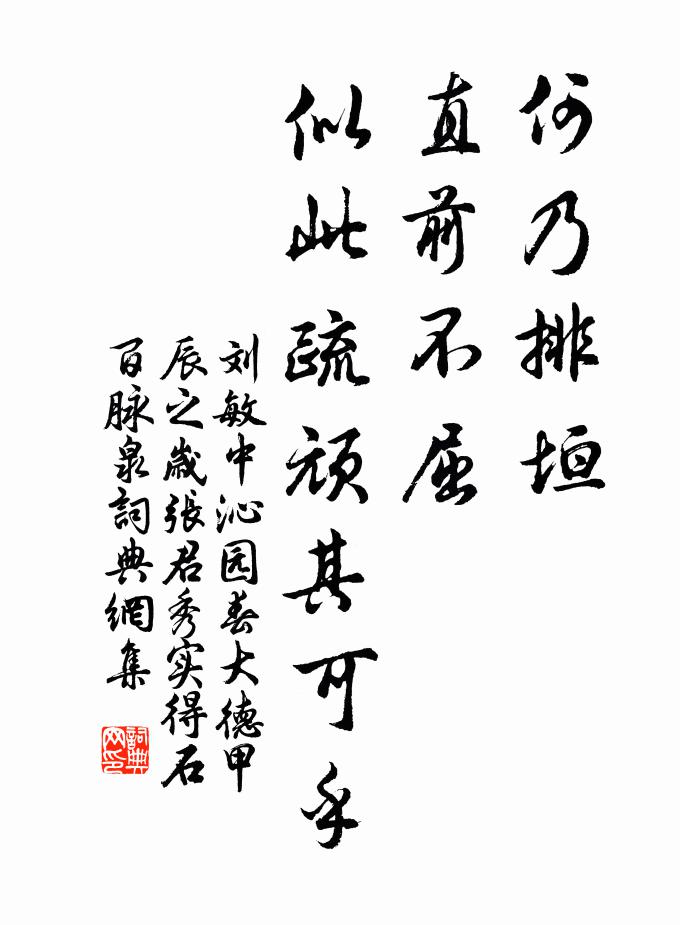 何乃排垣
直前不屈
似此疏顽其可乎
刘敏中沁园春大德甲
辰之歲張君秀实得石
百脉泉詞典網集
詞典
网印